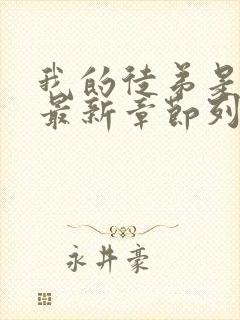 我的徒弟是
最新章节列
永井豪